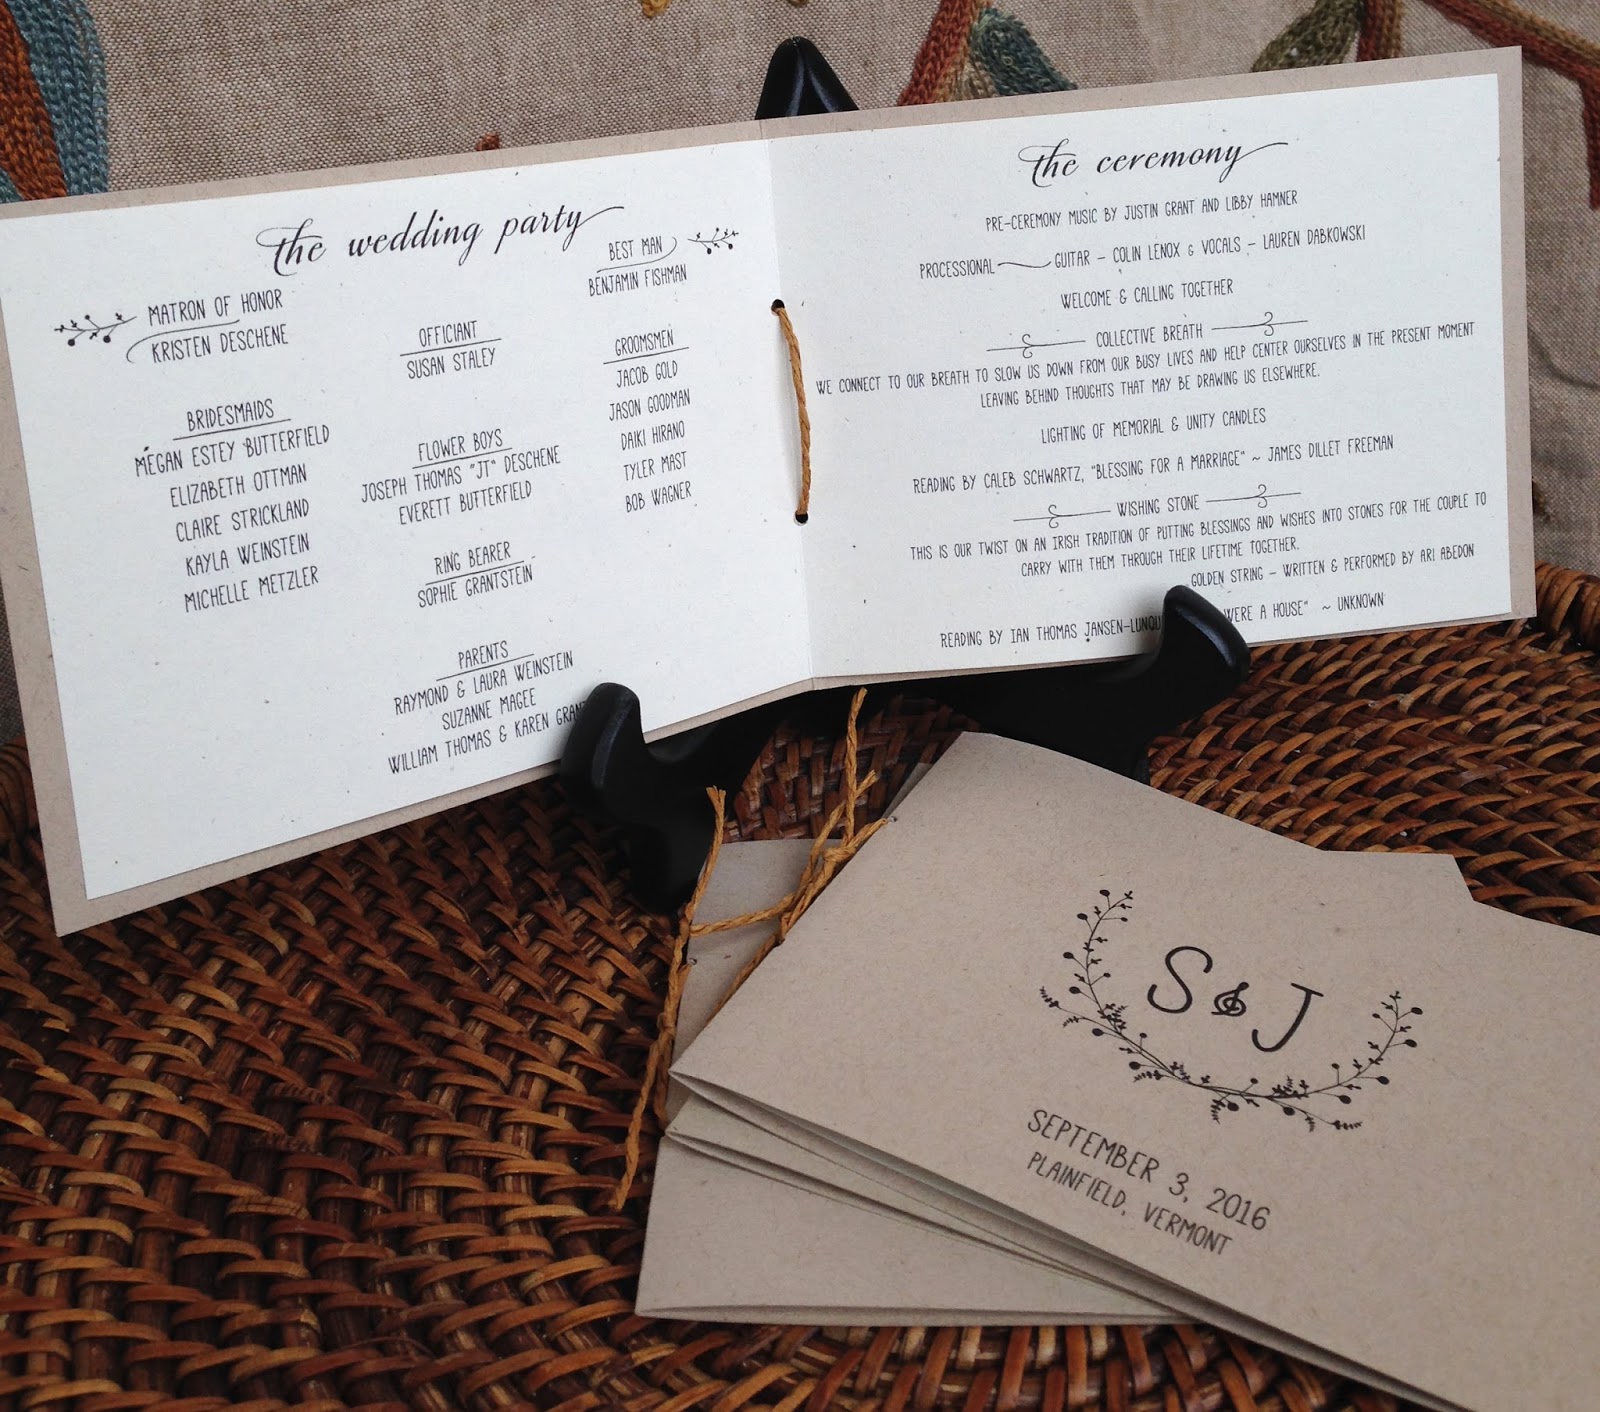 the wedding party
MATRON OF HONOR
KRISTEN DESCHENE
BRIDESMAIDS
MEGAN ESTEY BUTTERFIELD
ELIZABETH OTTMAN
CLAIRE STRICKLAND
KAYLA WEINSTEIN
MICHELLE METZLER
OFFICIANT
SUSAN STALEY
FLOWER BOYS
JOSEPH THOMAS "JT" DESCHENE
EVERETT BUTTERFIELD
RING BEARER
SOPHIE GRANTSTEIN
PARENTS
RAYMOND & LAURA WEINSTEIN
SUZANNE MAGEE
WILLIAM THOMAS & KAREN
BEST MAN
BENJAMIN FISHMAN
GROOMSMEN
JACOB GOLD
JASON GOODMAN
DAIKI HIRANO
TYLER MAST
BOB WAGNER
the ceremony
PRE-CEREMONY MUSIC BY JUSTIN GRANT AND LIBBY HAMNER
PROCESSIONAL GUITAR – COLIN LENOX & VOCALS – LAUREN DABKOWSKI
WELCOME & CALLING TOGETHER
COLLECTIVE BREATH
WE CONNECT TO OUR BREATH TO SLOW US DOWN FROM OUR BUSY LIVES AND HELP CENTER OURSELVES IN THE PRESENT MOMENT
LEAVING BEHIND THOUGHTS THAT MAY BE DRAWING US ELSEWHERE.
LIGHTING OF MEMORIAL & UNITY CANDLES
READING BY CALEB SCHWARTZ, "BLESSING FOR A MARRIAGE" ~ JAMES DILLET FREEMAN
WISHING STONE
THIS IS OUR TWIST ON AN IRISH TRADITION OF PUTTING BLESSINGS AND WISHES INTO STONES FOR THE COUPLE TO
CARRY WITH THEM THROUGH THEIR LIFETIME TOGETHER.
GOLDEN STRING – WRITTEN & PERFORMED BY ARI ABEDON
READING BY IAN THOMAS WERE A HOUSE" ~ UNKNOWN
S & J
SEPTEMBER 3, 2016
PLAINFIELD, VERMONT